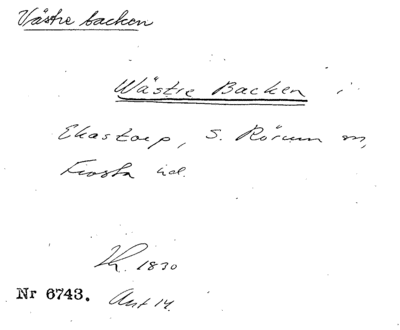 Västre backen
Wästre Backen i
Ekastorp, S. Rörum sn,
Frosta hd.
Lh. 1830
Nr 6743. Akt 14.